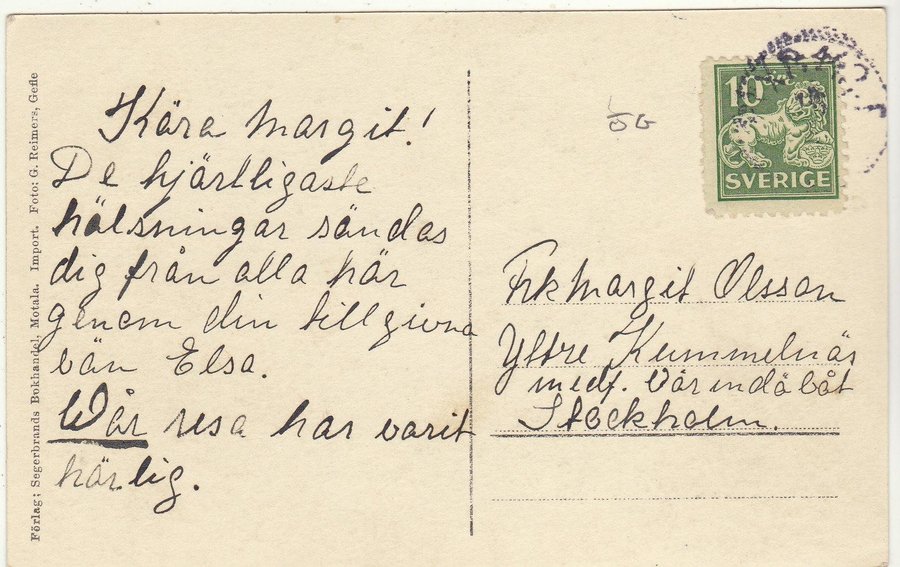 Kära Margit!
De hjärtligaste
hälsningar sändas
dig från alla här
genom din tillgivna
vän Elsa.
Wår resa har varit
härlig.
Förlag: Segerbrands Bokhandel, Motala. Import. Foto: G. Reimers, Gefle
10 öre
SVERIGE
Frk Margit Olsson
Yttre Kummelnäs
med Värmdö båt
Stockholm.